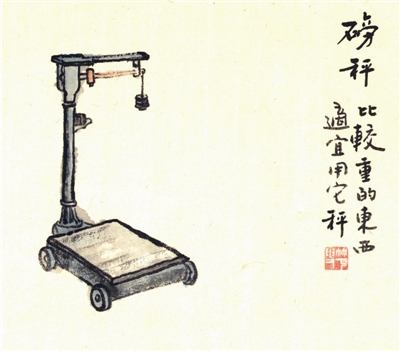 磅秤
比較重的東西
適宜用它秤